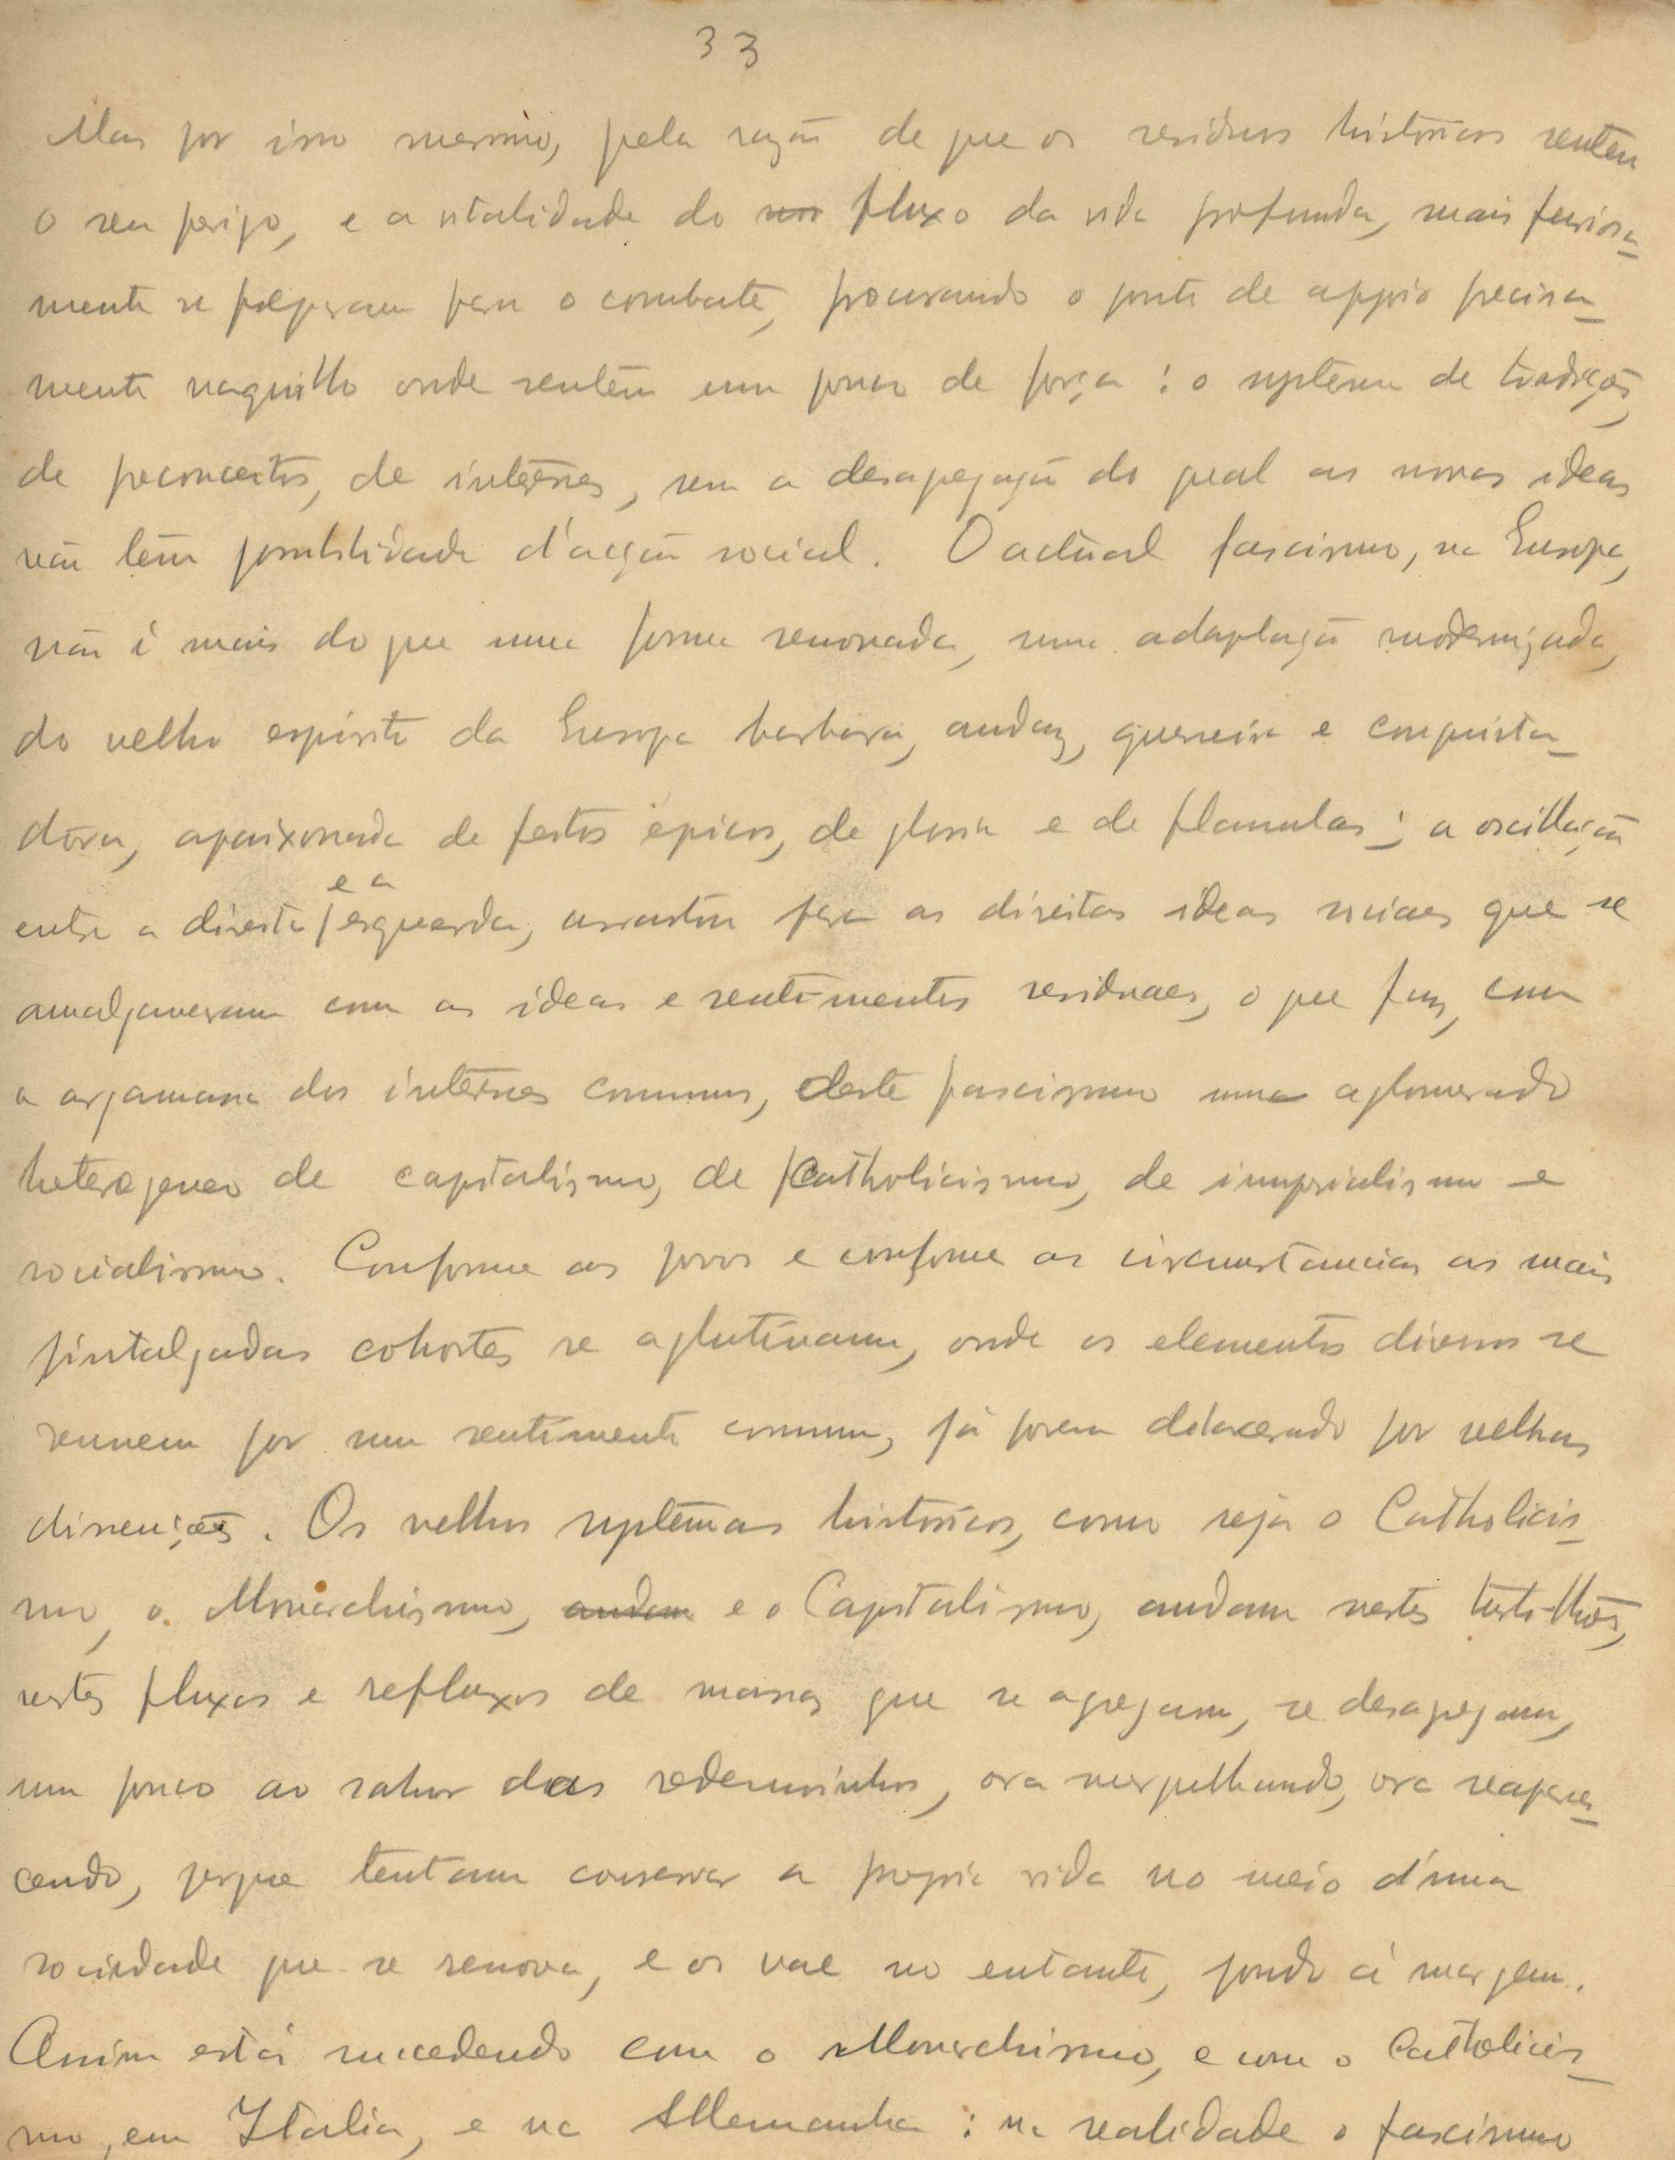 33
Mas por isso mesmo, pela razão de que os residuos históricos sentem
o seu perigo, e a vitalidade do fluxo da vida profunda, mais furiosa-
mente se preparam para o combate, procurando o ponto de appoio precisa-
mente naquillo onde sentem um pouco de força: o systema de tradições,
de preconceitos, de interêsses, sem a desagregação do qual as novas ideas
não têm possibilidade d'acção social. O actual fascismo, na Europa,
não é mais do que uma forma renovada, uma adaptação modernizada,
do velho espirito da Europa barbara, audaz, guerreira e conquista-
dôra, apaixonada de feitos épicos, de gloria e de flamulas; a oscillação
entre a direita e a esquerda, arrastou para as direitas ideas sociaes que se
amalgamaram com as ideas e sentimentos residuaes, o que faz, com
a argamassa dos interêsses communs, deste fascismo um aglomerado
heterogeneo de capitalismo, de Catholicismo, de imperialismo e
socialismo. Conforme os povos e conforme as circumstancias as mais
pintalgadas cohortes se aglutinam, onde os elementos diversos se
reunem por um sentimento commum, já porem dilacerado por velhas
dissenções. Os velhos systemas históricos, como seja o Catholicis-
mo, o Monarchismo, andam e o Capitalismo, andam nestes turbilhões,
nestes fluxos e refluxos de massas que se agregam, se desagregam,
um pouco ao sabor dos redemoinhos, ora mergulhando, ora reapare-
cendo, porque tentam conservar a propria vida no meio d'uma
sociedade que se renova, e os vae no entanto, pondo á margem.
Assim está succedendo com o Monarchismo, e com o Catholicis-
mo, em Italia, e na Allemanha: na realidade o fascismo